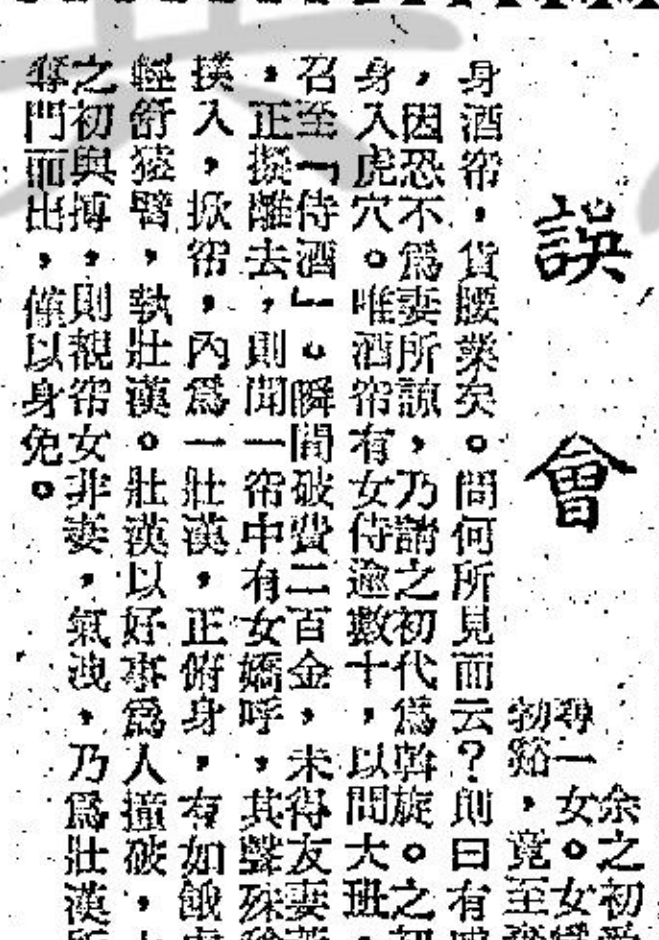 誤會
余之初
尋一女。女
勃谿，竟至
身酒帘，貨腰業矣。問何所見而云？則曰有
，因恐不爲妻所諒，乃請之初代爲斡旋。之初
身入虎穴。唯酒帘有女侍逾數十，以問大班，
召至「侍酒」。瞬間破費二百金，未得友妻
，正擬離去，則聞一帘中有女嬌呼，其聲殊
撲入，掀帘，內爲一壯漢，正俯身，有如餓虎
輕舒猿臂，執壯漢。壯漢以好事爲人撞破，
之初與搏，則覩帘女非妻，氣洩，乃爲壯漢所
奪門而出，僅以身免。